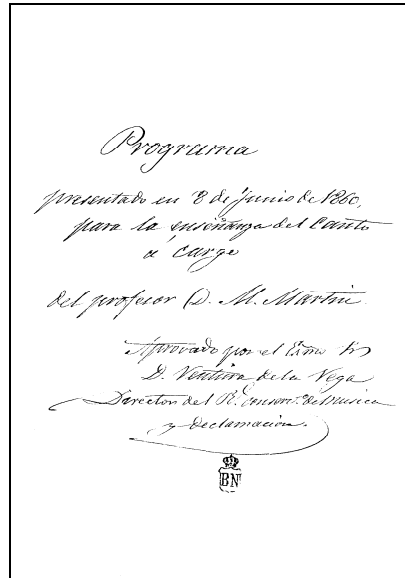 Programa
presentado en 8 de Junio de 1860,
para la enseñanza del Canto
a cargo
del profesor D. M. Martin
Aprovado por el Exmo Sr
D. Ventura de la Vega
Director del Rl. Conservo. de Musica
y Declamacion.
BN